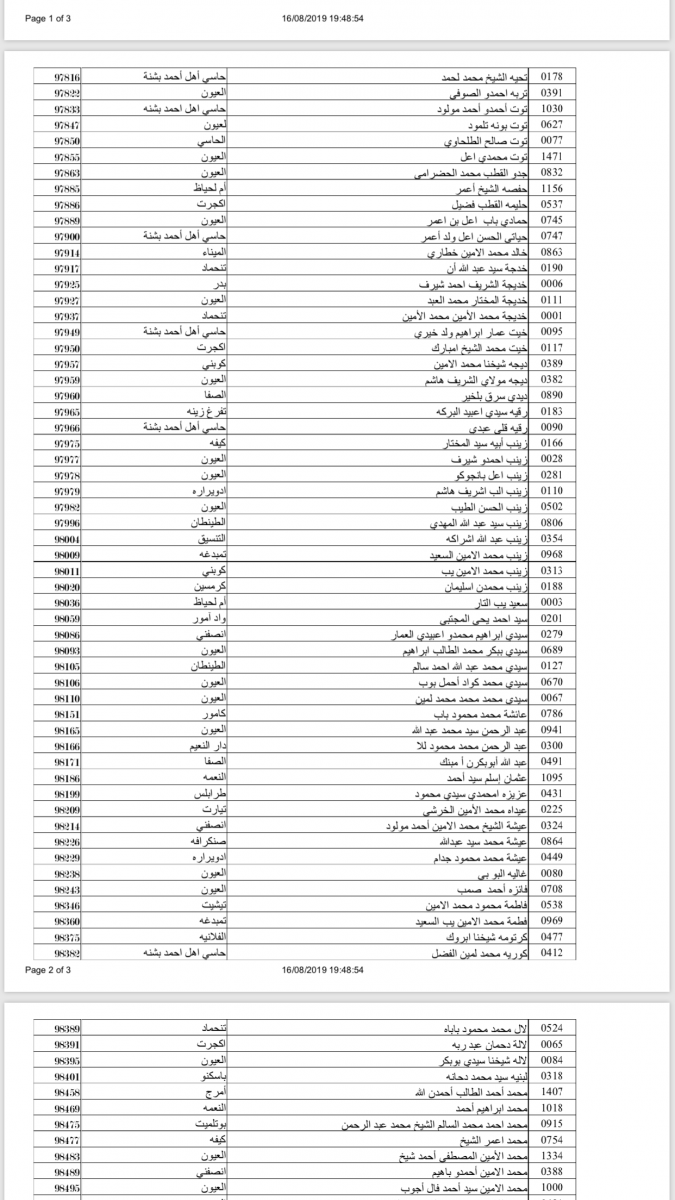 Page 1 of 3 16/08/2019 19:48:54
0178 تحيه الشيخ محمد لحمد حاسي أهل أحمد بشنة 97816
0391 تربه احمدو الصوفي العيون 97822
1030 توت أحمدو أحمد مولود حاسي اهل احمد بشنه 97833
0627 توت بونه تلمود لعيون 97847
0077 توت صالح الطلحاوي الحاسي 97850
1471 توت محمدي اعل العيون 97855
0832 جدو القطب محمد الحضرامى العيون 97863
1156 حفصه الشيخ أعمر أم لحياظ 97885
0537 حليمه القطب فضيل اكجرت 97886
0745 حمادي باب اعل بن اعمر العيون 97889
0747 حياتي الحسن اعل ولد أعمر حاسي أهل أحمد بشنة 97900
0863 خالد محمد الامين خطاري الميناء 97914
0190 خدجة سيد عبد الله أن تنحماد 97917
0006 خديجة الشريف احمد شيرف بدر 97925
0111 خديجة المختار محمد العبد العيون 97927
0001 خديجة محمد الأمين محمد الأمين تنحماد 97937
0095 خيت عمار ابراهيم ولد خيري حاسي أهل أحمد بشنة 97949
0117 خيت محمد الشيخ امبارك اكجرت 97950
0389 ديجه شيخنا محمد الامين كوبني 97957
0382 ديجه مولاي الشريف هاشم العيون 97959
0890 ديدي سرق بلخير الصفا 97960
0183 رقيه سيدي اعبيد البركه تفرغ زينه 97965
0090 رقيه قلي عبدي حاسي أهل أحمد بشنة 97966
0166 زينب أبيه سيد المختار كيفه 97975
0028 زينب احمدو شيرف العيون 97977
0281 زينب اعل بانجوكو العيون 97978
0110 زينب الب اشريف هاشم ادويراره 97979
0502 زينب الحسن الطيب العيون 97982
0806 زينب سيد عبد الله المهدي الطينطان 97996
0354 زينب عبد الله اشراكه التنسيق 98004
0968 زينب محمد الامين السعيد تمبدغه 98009
0313 زينب محمد الامين يب كوبني 98011
0188 زينب محمدن اسليمان كرمسين 98020
0003 سعيد يب التار أم لحياظ 98036
0201 سيد احمد يحى المجتبى واد أمور 98059
0279 سيدي ابراهيم محمدو اعبيدي العمار انصفني 98086
0689 سيدي ببكر محمد الطالب ابراهيم العيون 98093
0127 سيدي محمد عبد الله احمد سالم الطينطان 98105
0670 سيدي محمد كواد أحمل بوب العيون 98106
0067 سيدي محمد محمد محمد لمين العيون 98110
0786 عائشة محمد محمود باب كامور 98151
0941 عبد الرحمن سيد محمد عبد الله العيون 98165
0300 عبد الرحمن محمد محمود للا دار النعيم 98166
0491 عبد الله أبوبكرن أ مبنك الصفا 98171
1095 عثمان إسلم سيد أحمد النعمه 98186
0431 عزيزه امحمدي سيدي محمود طرابلس 98199
0225 عيداه محمد الأمين الخرشي تيارت 98209
0324 عيشة الشيخ محمد الامين أحمد مولود انصفني 98214
0864 عيشة محمد سيد عبدالله صنكرافه 98226
0449 عيشة محمد محمود جدام ادويراره 98229
0080 غاليه البو بي العيون 98238
0708 فائزه أحمد صمب العيون 98243
0538 فاطمة محمود محمد الامين تيشيت 98346
0969 فطمة محمد الامين يب السعيد تمبدغه 98360
0477 كرتومه شيخنا ابروك الفلانيه 98375
0412 كوريه محمد لمين الفضل حاسي اهل احمد بشنه 98382
Page 2 of 3 16/08/2019 19:48:54
0524 لال محمد محمود باباه تنحماد 98389
0065 لالة دحمان عبد ربه اكجرت 98391
0084 لاله شيخنا سيدي بوبكر العيون 98395
0318 لبنيه سيد محمد دحانه باسكنو 98401
1407 محمد أحمد الطالب أحمدن الله أمرج 98458
1018 محمد ابراهيم أحمد النعمه 98469
0915 محمد احمد محمد السالم الشيخ محمد عبد الرحمن بوتلميت 98475
0754 محمد اعمر الشيخ كيفه 98477
1334 محمد الأمين المصطفى أحمد شيخ العيون 98483
0388 محمد الامين أحمدو باهيم انصفني 98489
1000 محمد الامين سيد أحمد فال أجوب العيون 98495